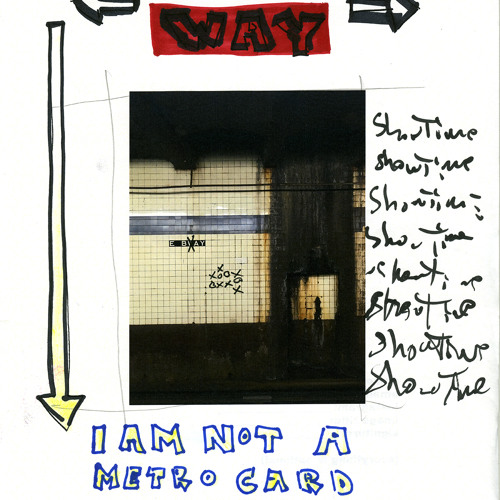 WAY
ShowTime
showTime
ShowTime
ShowTime
showTime
ShowTime
ShowTime
ShowTime
E BWAY
I AM NOT A
METRO CARD